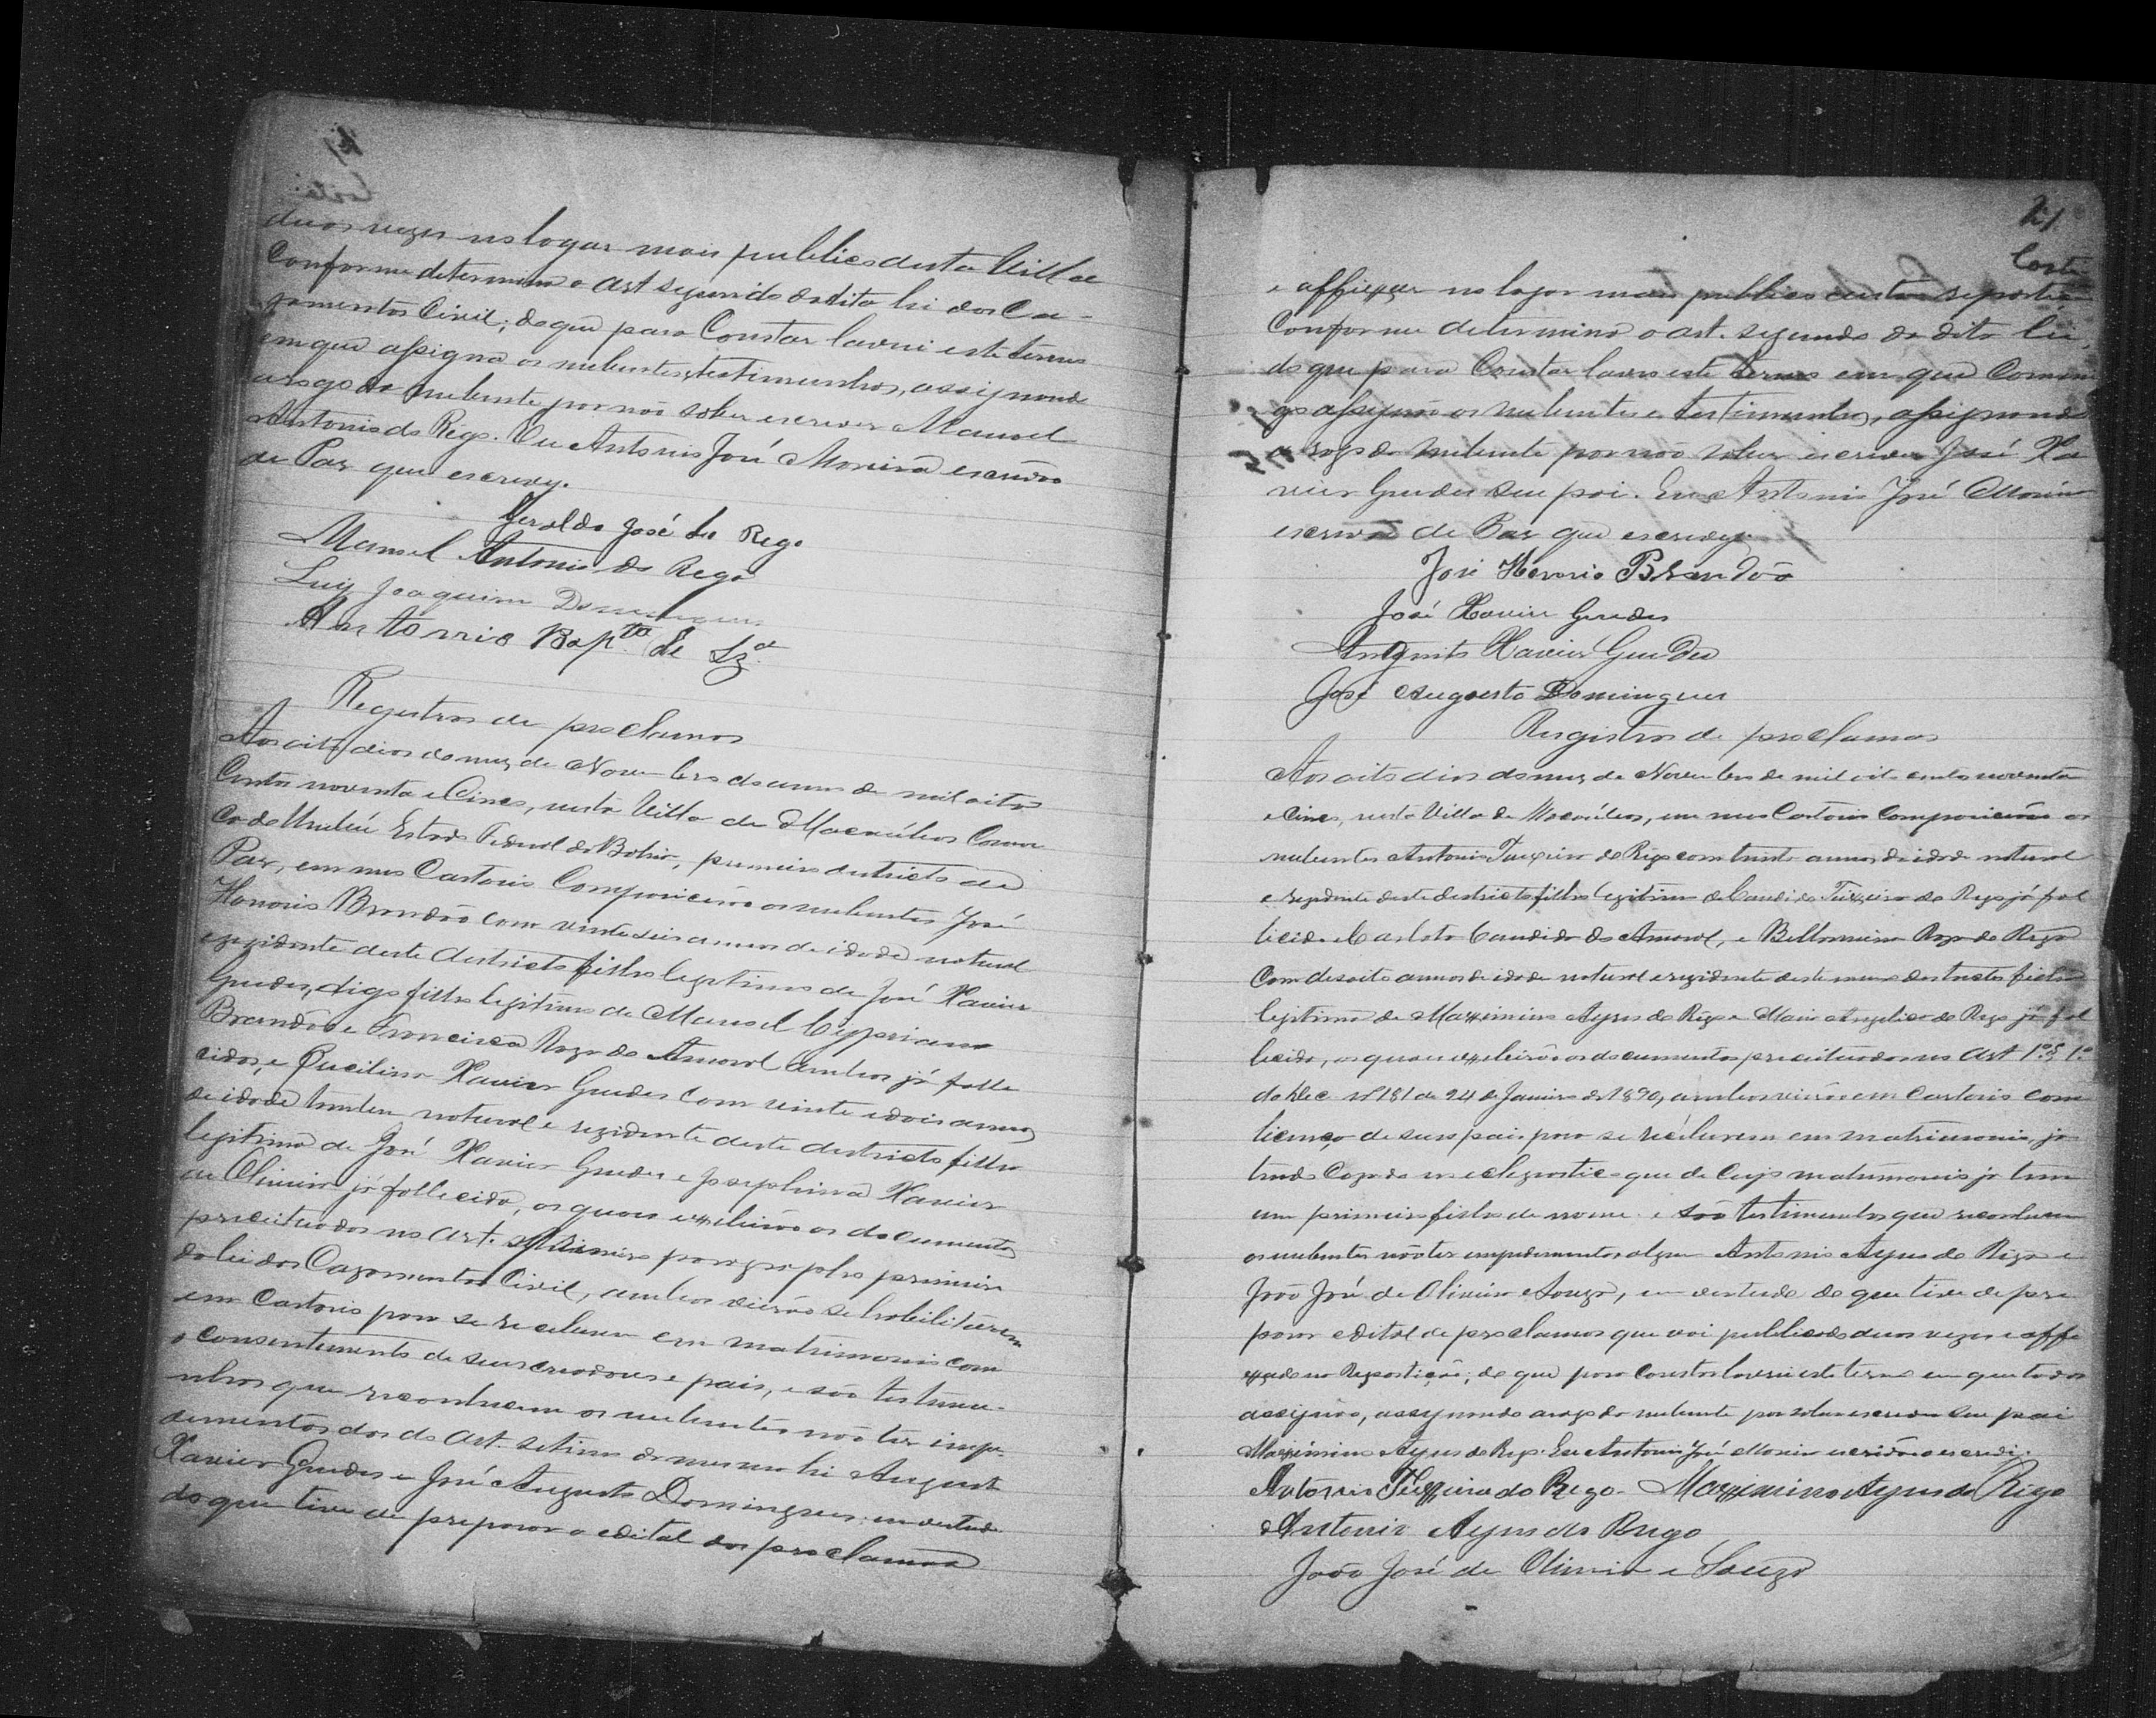 duas vezes no logar mais publico desta Villa e
Conforme determina o art segundo da dita lei dos Ca-
zamentos Civil; do que para Constar lavrei este termo
em que assigna os nubentes, testimunhas, assignando
a rogo da nubente por não saber escrever Manoel
Antonio do Rego. Eu Antonio José Moreira escrivão
de Paz que escrevy.
Geraldo José do Rego
Manoel Antonio do Rego
Luiz Joaquim Domingues
Antonio Bapta. de Sza.
Registros de proclamos
Aos oito dias do mez de Novembro do anno de mil oito
Centos noventa e Cinco, nesta Villa de Macaúbas Comar
Ca do Urubú Estado Federal da Bahia, primeiro destricto de
Paz, em meu Cartorio Comparecerão os nubentes José
Honorio Brandão com vinte seis annos de idade natural
e rezidente deste destricto filho legitimo de José Xavier
Guedes, digo filho legitimo de Manoel Cyppriano
Brandão e Francisca Roza do Amaral ambos já falle
cidos, e Xavier Guedes Com vinte e dois annos
de idade tambem natural e rezidente deste destricto filha
legitima de José Xavier Guedes e Josephina Xavier
de Oliveira já fallecida, os quaes exebirão os documentos
preceituados no art. primeiro paragrapho primeiro
da lei dos Cazamentos Civil, ambos vierão se habilitarem
em Cartorio para se receberem em matrimonio com
o Consentimento de seus criadores e pais, e são testimu-
nhas que reconhecem os nubentes não ter impe-
dimentos dos do art. setimo da mesma lei Augusto
Xavier Guedes e José Augusto Domingues; em vertude
do que tive de preparar o edital dos proclamos
21
e affixar no logar mais publico desta repartição
Conforme determina o art. segundo da dita lei,
do que para Constar lavro este termo em que Comi
go assignão os nubentes e testimunhas, assignando
a rogo da nubente por não saber escrever José Xa
vier Guedes seu pai. Eu Antonio José Moreira
escrivão de Paz que escrevy.
José Honorio Brandão
José Xavier Guedes
Augusto Xavier Guedes
José Augusto Domingues
Registros de proclamas
Aos oito dias do mez de Novembro de mil oito centos noventa
e Cinco, nesta Villa de Macaúbas, em meu Cartorio Comparecerão os
nubentes Antonio Teixeira do Rego com trinta annos de idade natural
e rezidente deste destricto filho legitimo de Candido Teixeira do Rego já fal
licido e Carlota Candida do Amaral, e Bellarmina Roza do Rego
Com desoito annos de idade natural e rezidente deste mesmo destricto filha
legitima de Maximino Ayres do Rego e Maria Angelica do Rego já fal
licida, os quaes exebirão os documentos preceituados no Art 1º § 1º
do Dec. nº 181 de 24 de Janeiro de 1890, ambos vierão em Cartorio com
licença de seus pais para se receberem em matrimonio, já
tendo Cazado no ecleziastico que de Cujo matrimonio já tem
um primeiro filho de nome e são testimunhas que reconhecem
os nubentes não ter empedimentos algum Antonio Ayres do Rego e
João José de Oliveira e Souza, em vertude do que tive de pre
parar edital de proclamos que vai publicado duas vezes e affi
xado na Repartição; do que para Constar lavrei este termo em que todos
assignão, assignando a rogo da nubente por não saber escrever seu pai
Maximino Ayres do Rego. Eu Antonio José Moreira escrivão o escrevi.
Antonio Teixeira do Rego. Maximino Ayres do Rego
Antonio Ayres do Rego
João José de Oliveira e Souza